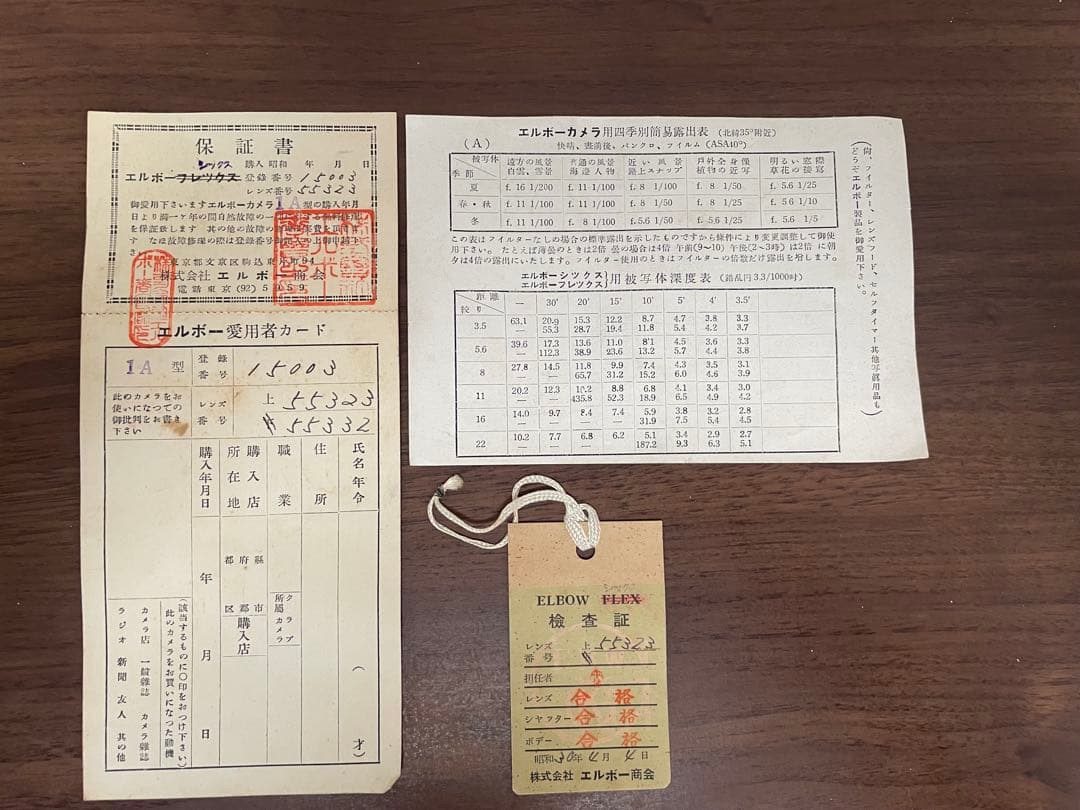 保証書
購入 昭和 年 月 日
シックス
エルボーフレックス 登録番号 15003
レンズ番号 55323
御愛用下さいますエルボーカメラ1A型の購入年月
日より満一ヶ年の間自然故障の
を保証致します 其の他の故障の
すなほ故障修理の際は登録番号
東京都文京区駒込
株式会社 エルボー商会
電話東京(92)5059
エルボー愛用者カード
1A 型
登録番号 15003
此のカメラをお
使いになつての
御批判をお書き
下さい
レンズ番号
上 55323
〃 55332
氏名年令
( 才 )
住所
職業
クラブ
所属カメラ
購入店
所在地
都府縣
市郡区
購入店
購入年月日
年 月 日
(該当するものに○印をおつけ下さい)
此のカメラをお買いになつた動機
カメラ店 一般雜誌 カメラ雜誌
ラジオ 新聞 友人 其の他
エルボーカメラ用四季別簡易露出表 (北緯35°附近)
(A) 快晴、晝前後、パンクロ、フイルム (ASA40°)
被写体 季節 遠方の風景 白雲、雪景 普通の風景 海辺人物 近い風景 路上スナップ 戸外全身像 植物の近写 明るい窓際 草花の接写
夏 f. 16 1/200 f. 11 1/100 f. 8 1/100 f. 8 1/50 f. 5.6 1/25
春・秋 f. 11 1/100 f. 11 1/100 f. 8 1/50 f. 8 1/25 f. 5.6 1/10
冬 f. 11 1/100 f. 8 1/100 f. 5.6 1/50 f. 5.6 1/25 f. 5.6 1/5
この表はフイルターなしの場合の標準露出を示したものですから條件により変更調整して御使
用下さい。たとえば薄曇のときは2倍 曇の場合は4倍 午前(9〜10) 午後(2〜3時)は2倍 に朝
夕は4倍の露出にいたします。フイルター使用のときはフイルターの倍数だけ露出を増します。
エルボーシックス
エルボーフレックス
}用被写体深度表 (錯乱円3.3/1000吋)
距離 絞り — 30' 20' 15' 12' 10' 7' 5' 4' 3.5'
3.5 63.1 20.9 15.3 12.2 8.7 4.7 3.8 3.3
— 55.3 28.7 19.4 11.8 5.4 4.2 3.7
5.6 39.6 17.3 13.6 11.0 8.1 4.5 3.6 3.3
— 112.3 38.9 23.6 13.2 5.7 4.4 3.8
8 27.8 14.5 11.8 9.9 7.4 4.3 3.5 3.1
— — 65.7 31.2 15.2 6.0 4.6 3.9
11 20.2 12.3 10.2 8.8 6.8 4.1 3.4 3.0
— — 435.8 52.3 18.9 6.5 4.9 4.2
16 14.0 9.7 8.4 7.4 5.9 3.8 3.2 2.8
— — — — 31.9 7.5 5.4 4.5
22 10.2 7.7 6.8 6.2 5.1 3.4 2.9 2.7
— — — — 187.2 9.3 6.3 5.1
尚、フイルター、レンズフード、セルフタイマー其他写眞用品も
どうぞエルボー製品を御愛用下さい。
シックス
ELBOW FLEX
檢査証
レンズ番号 上 55323
〃
担任者
レンズ 合格
シャッター 合格
ボデー 合格
昭和30年4月4日
株式会社 エルボー商会